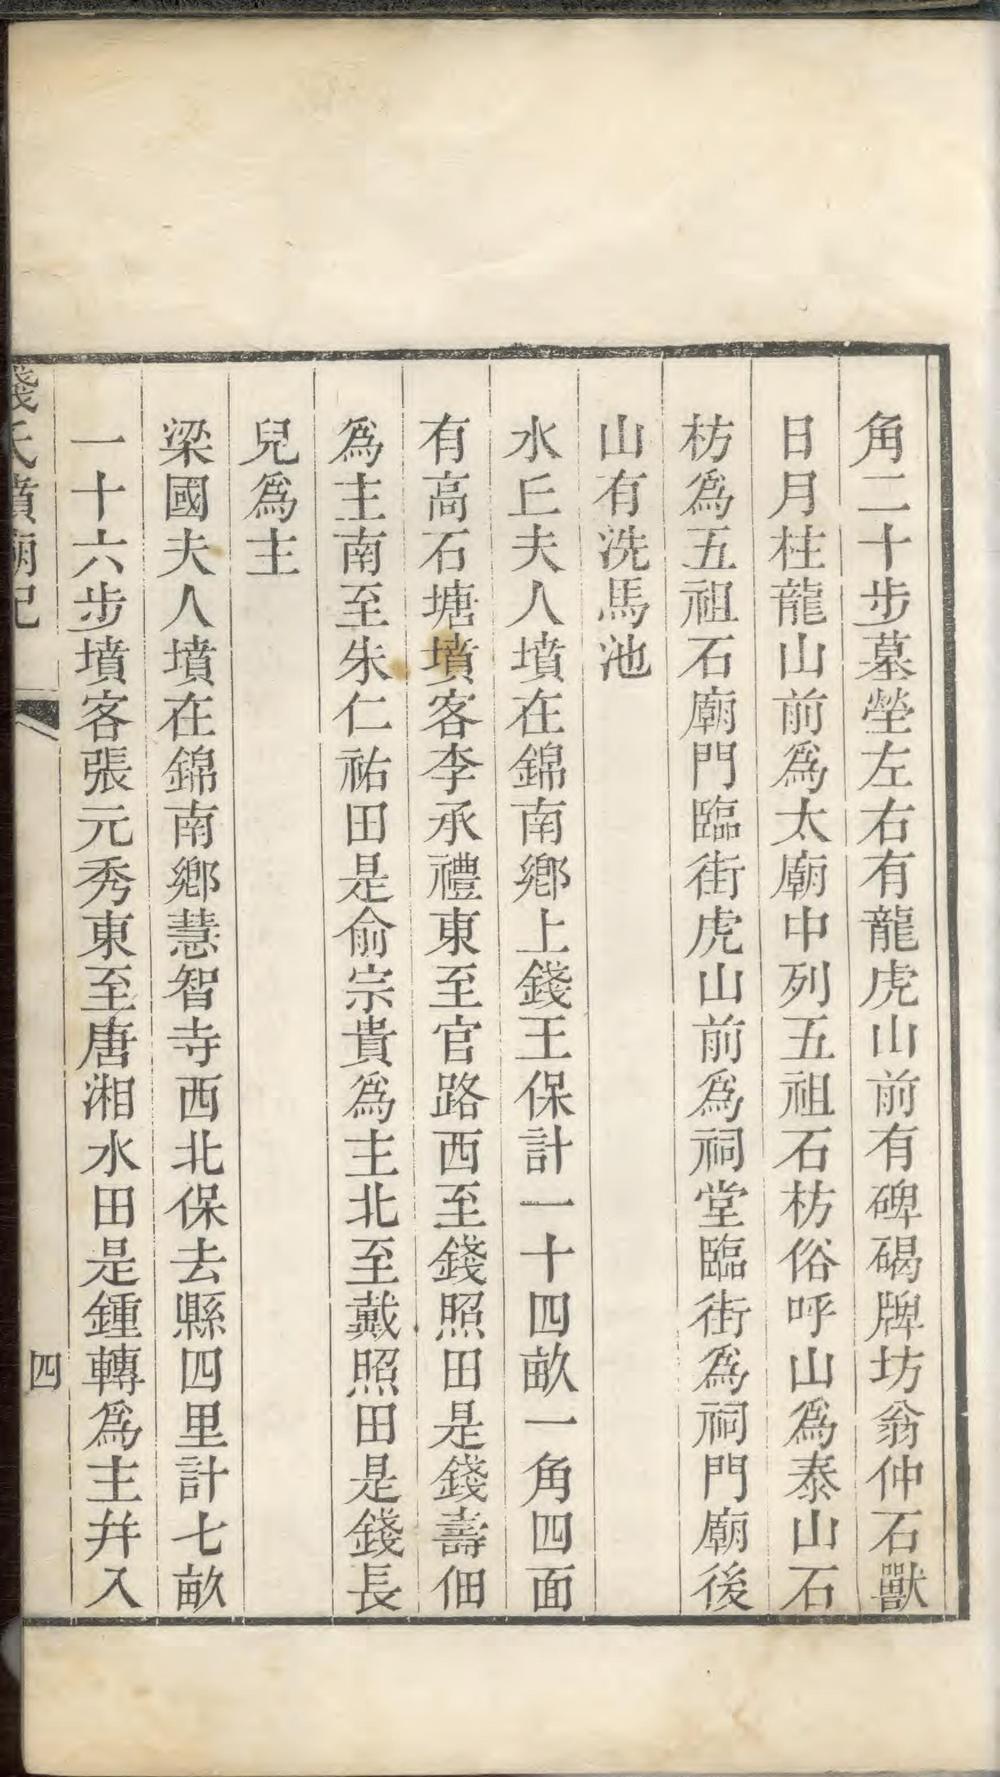 角二十步墓塋左右有龍虎山前有碑碣牌坊翁仲石獸
日月柱龍山前為太廟中列五祖石枋俗呼山為泰山石
枋為五祖石廟門臨街虎山前為祠堂臨街為祠門廟後
山有洗馬池
水丘夫人墳在錦南鄉上錢王保計一十四畝一角四面
有高石塘墳客李承禮東至官路西至錢照田是錢壽佃
為主南至朱仁祐田是俞宗貴為主北至戴照田是錢長
兒為主
梁國夫人墳在錦南鄉慧智寺西北保去縣四里計七畝
一十六步墳客張元秀東至唐湘水田是鍾轉為主并入
錢氏墳廟記
四